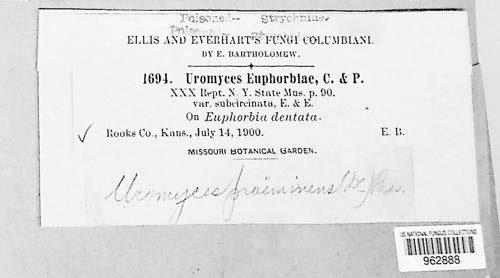 Poisoned-- Strychnine.
Poisoned--
ELLIS AND EVERHART'S FUNGI COLUMBIANI.
BY E. BARTHOLOMEW.
1694. Uromyces Euphorbiae, C. & P.
XXX Rept. N. Y. State Mus. p. 90.
var. subcircinata, E. & E.
On Euphorbia dentata.
✓ Rooks Co., Kans., July 14, 1900. E. B.
MISSOURI BOTANICAL GARDEN.
Uromyces proëminens (DC.) Pass.
US NATIONAL FUNGUS COLLECTIONS
962888